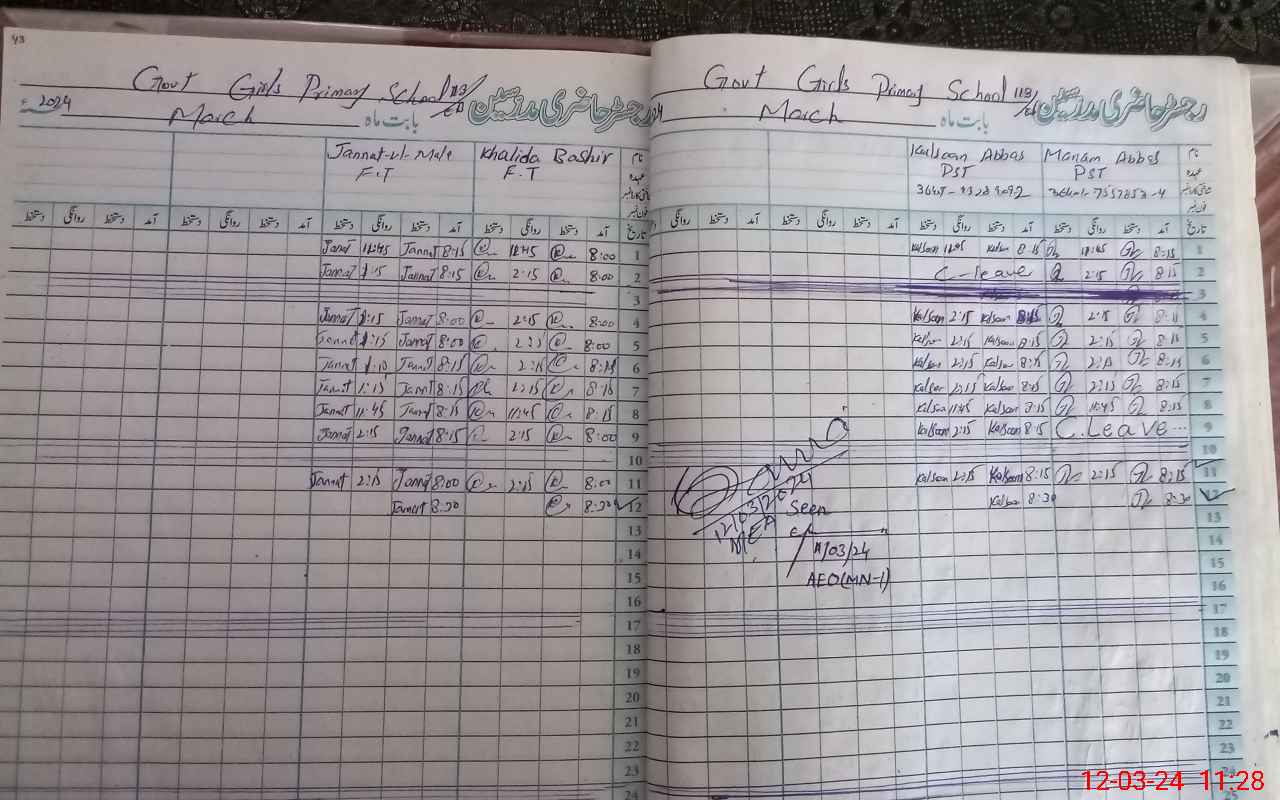 43
Govt Girls Primary School 113/
2024
March
بابت ماہ
رجسٹر حاضری مدرسین
Jannat-ul-Male Khalida Bashir نام
F.T F.T عہدہ
دستخط روانگی دستخط آمد دستخط روانگی دستخط آمد دستخط روانگی دستخط آمد دستخط روانگی دستخط آمد تاریخ
Jannat 11:45 Jannat 8:15 11:45 8:00 1
Jannat 1:15 Jannat 8:15 2:15 8:00 2
3
Jannat 1:15 Jannat 8:00 2:15 8:00 4
Jannat 1:15 Jannat 8:00 2:15 8:00 5
Jannat 1:10 Jannat 8:15 2:15 8:15 6
Jannat 1:15 Jannat 8:15 8:15 7
Jannat 11:45 Jannat 8:15 11:45 8:15 8
Jannat 2:15 Jannat 8:15 2:15 8:00 9
10
Jannat 2:15 Jannat 8:00 2:15 8:00 11
Jannat 8:30 8:30 12
13
14
15
16
17
18
19
20
21
22
23
24
Govt Girls Primary School 113/
March
بابت ماہ
رجسٹر حاضری مدرسین
Kalsoon Abbas Manam Abbas نام
PST PST عہدہ
روانگی دستخط آمد دستخط روانگی دستخط آمد دستخط روانگی دستخط آمد دستخط روانگی دستخط آمد تاریخ
Kalsoon 11:45 Kalsoon 8:15 11:45 8:15 1
C-leave 2:15 8:15 2
3
Kalsoon 2:15 Kalsoon 8:15 2:15 4
Kalsoon 2:15 Kalsoon 8:15 2:15 8:15 5
Kalsoon 2:15 Kalsoon 8:15 2:15 8:15 6
Kalsoon 2:15 Kalsoon 8:15 2:15 8:15 7
Kalsoon 11:45 Kalsoon 8:15 11:45 8:15 8
Kalsoon 2:15 Kalsoon 8:15 C.Leave 9
10
Kalsoon 2:15 Kalsoon 8:15 2:15 8:15 11
Kalsoon 8:30 8:30 12
12/03/2024
MEA
Seen
11/03/24
AEO(MN-1)
13
14
15
16
17
18
19
20
21
22
23
24
25
12-03-24 11:28